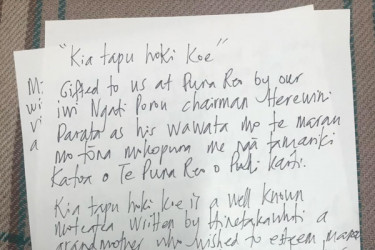 "Kia tapu hoki koe"
Gifted to us at Puna Reo by our
iwi Ngati Porou chairman Herewini
Parata as his wawata mo te
mo tōna mokopuna me ngā tamariki
Katoa o Te Puna Reo o Puhi Kaiti.
Kia tapu hoki koe is a well known
written by Hinetakawhiti a
grandmother who wished to esteem
Mi
wi
vi
a